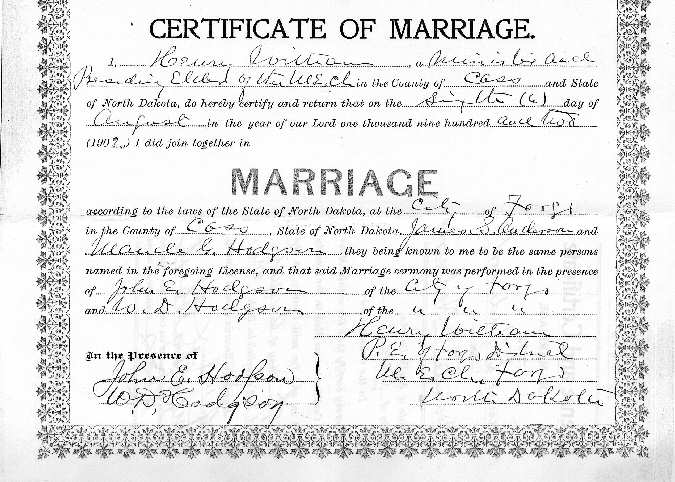 CERTIFICATE OF MARRIAGE.
I, Henry William a Minister and
Presiding Elder of the M.E.Ch in the County of Cass and State
of North Dakota, do hereby certify and return that on the Sixth (6) day of
August in the year of our Lord one thousand nine hundred and two
(1902,) I did join together in
MARRIAGE
according to the laws of the State of North Dakota, at the City of Fargo
in the County of Cass, State of North Dakota, James S. Anderson and
Maude C. Hodgson they being known to me to be the same persons
named in the foregoing License, and that said Marriage cermony was performed in the presence
of John E. Hodgson of the City of Fargo
and W. D. Hodgson of the " " "
Henry William
P. E. of Fargo District
In the Presence of
John E. Hodgson
M. E. Ch. Fargo
W.D. Hodgson
North Dakota